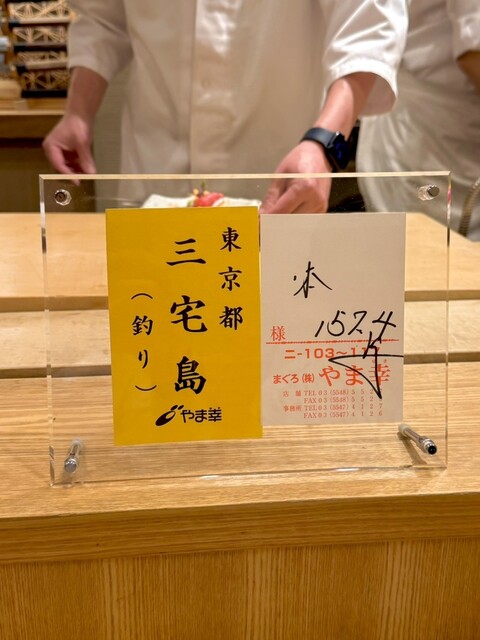 東京都
三宅島
（釣り）
やま幸
本
157.4
様
ニ-103~1
まぐろ(株)やま幸
店舗 TEL 03(5548)5
FAX 03(5548)5
事務所 TEL 03(5547)4127
FAX 03(5547)4126